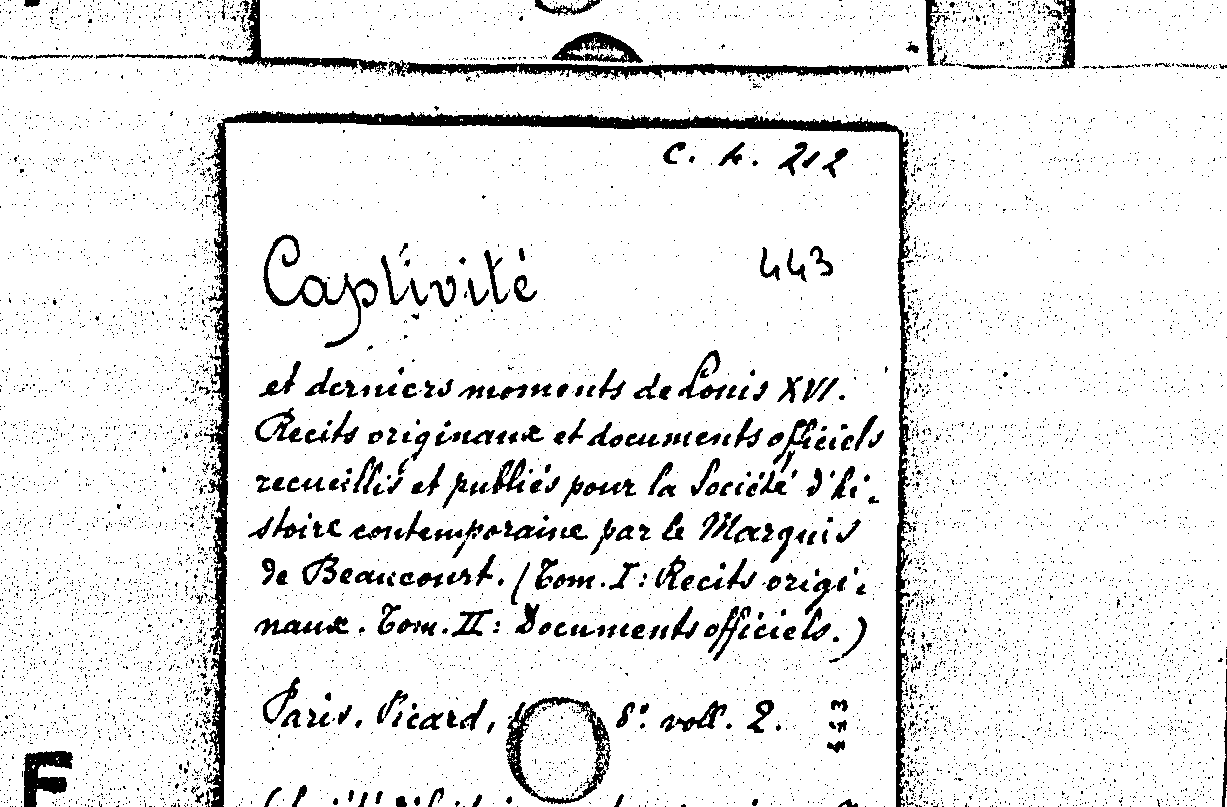 C. h. 212
Captivité
443
et derniers moments de Louis XVI.
Recits originaux et documents officiels
recueillis et publiés pour la Société d'hi-
stoire contemporaine par le Marquis
de Beaucourt. (Tom. I: Recits origi-
naux. Tom. II: Documents officiels.)
Paris, Picard, 8° voll. 2.
443
F